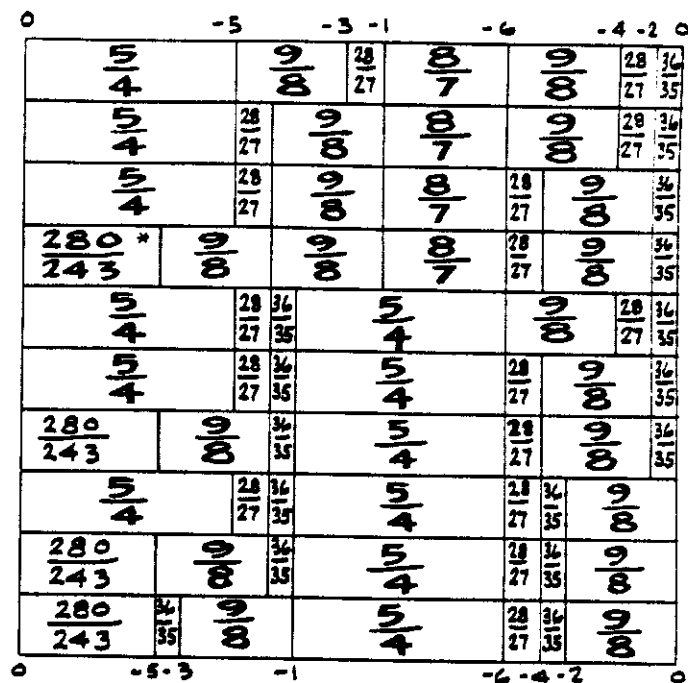 0 -5 -3 -1 -6 -4 -2 0
5/4 9/8 28/27 8/7 9/8 28/27 36/35
5/4 28/27 9/8 8/7 9/8 28/27 36/35
5/4 28/27 9/8 8/7 28/27 9/8 36/35
280/243 * 9/8 9/8 8/7 28/27 9/8 36/35
5/4 28/27 36/35 5/4 9/8 28/27 36/35
5/4 28/27 36/35 5/4 28/27 9/8 36/35
280/243 9/8 36/35 5/4 28/27 9/8 36/35
5/4 28/27 36/35 5/4 28/27 36/35 9/8
280/243 9/8 36/35 5/4 28/27 36/35 9/8
280/243 36/35 9/8 5/4 28/27 36/35 9/8
0 -5 -3 -1 -6 -4 -2 0